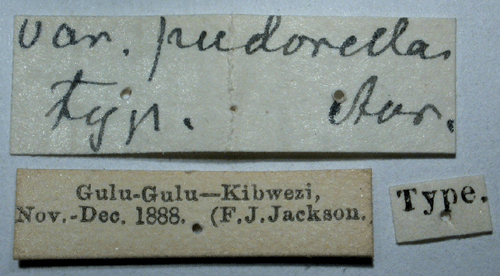 var. pudorella
typ. Aur.
Gulu-Gulu—Kibwezi,
Nov.-Dec. 1888. (F.J.Jackson.
Type.